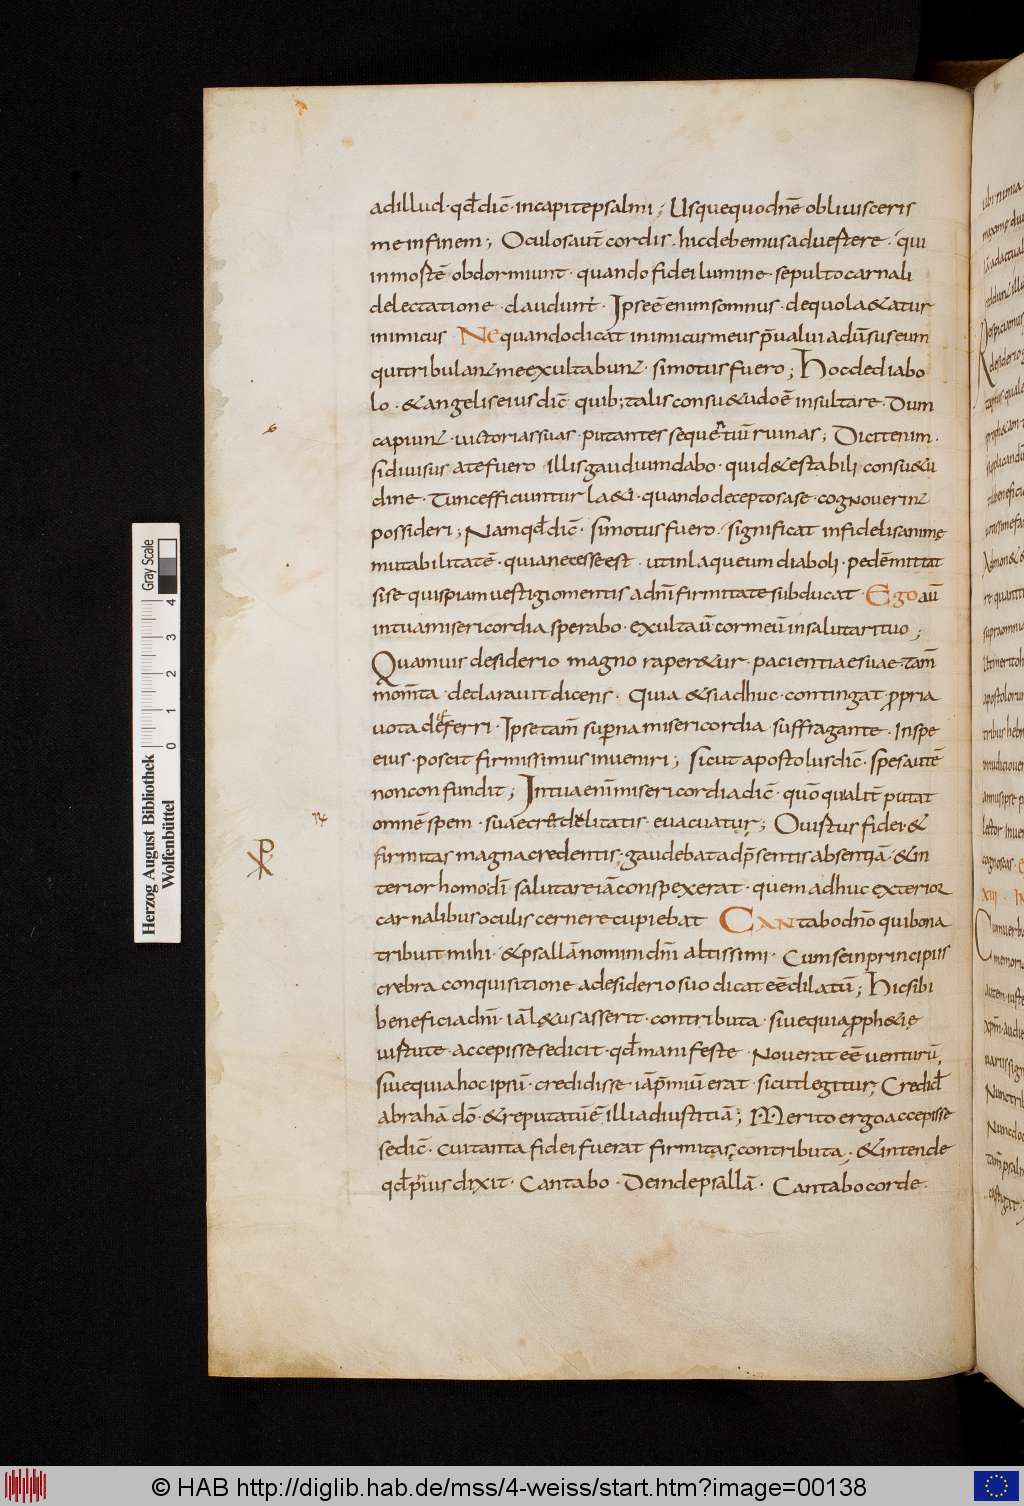 adillud· qđ dic̄· incapite psalmi; Usquequo dn̄e obliuisceris
me in finem; Oculos aut̄ cordis· hic debemus aduertere· qui
in morte obdormiunt· quando fidei lumine· sepulto carnali
delectatione· claudunt· Ipse ē enim somnus· de quo laetatur
inimicus Ne quando dicat inimicus meus p̄ualui adūsus eum
qui tribulant me exultabunt· si motus fuero; Hoc de diabo
lo· & angelis eius dic̄ quib; talis consuetudo ē insultare· Dum
capiunt· uictorias suas· putantes sequentiū ruinas; Dicit enim·
si diuisus a te fuero illis gaudium dabo· quid & est abili consuetu
dine· Tunc efficiuntur laeti· quando deceptos a se· cognouerint
possideri; Nam qđ dic̄· si motus fuero· significat infidelis animę
mutabilitatē· quia necesse est· ut in laqueum diaboli· pedē mittat
si se quispiam uestigio mentis a dn̄i firmitate subducat· Ego aū
in tua misericordia sperabo· exultaū cor meū in salutari tuo;
Quamuis desiderio magno raperetur· pacientiae suae· tam̄
mom̄ta· declarauit dicens· Quia & si adhuc· contingat p̱pria
uota defferri· Ipse tam̄ superna misericordia suffragante· In spe
eius· poscit firmissimus inueniri; sicut apostolus dic̄· spes autē
non confundit; In tua enī misericordia dic̄· quō qualit̄ putat
omnē spem· suā ecredelitatis· euacuatur; O uirtus fidei· &
firmitas magna credentis· gaudebat ad p̄sentis absentiā· & in
terior homo dī salutare iā conspexerat· quem adhuc exterior
carnalibus oculis cernere cupiebat Cantabo dn̄o qui bona
tribuit mihi· & psallā nomini dn̄i altissimi· Cum se in principiis
crebra conquisitione a desiderio suo dicat eē dilatū; Hic sibi
beneficia dn̄i· iā l&us asserit· contributa· siue quia p̱ph&ię
uirtute· accepisse se dicit· qđ manifeste· Nouerat eē uenturū,
siue quia hoc ipsū· credidisse· iā p̄miū erat· sicut legitur; Credid̄
abrahā dō· & reputatū ē illi ad iustitiā; Merito ergo accepisse
se dic̄· cui tanta fidei fuerat firmitas contributa; & intende
qđ prius dixit· Cantabo· Deinde psallā· Cantabo corde·
Herzog August Bibliothek
Wolfenbüttel
0 1 2 3 4
Gray Scale
© HAB http://diglib.hab.de/mss/4-weiss/start.htm?image=00138